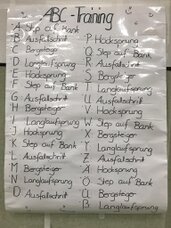 ABC-Training
A Step auf Bank
B Ausfallschritt
C Bergsteiger
D Langlaufsprung
E Hocksprung
F Step auf Bank
G Ausfallschritt
H Bergsteiger
I Langlaufsprung
J Hocksprung
K Step auf Bank
L Ausfallschritt
M Bergsteiger
N Langlaufsprung
O Ausfallschritt
P Hocksprung
Q Step auf Bank
R Ausfallschritt
S Bergsteiger
T Langlaufsprung
U Hocksprung
V Ausfallschritt
W Step auf Bank
X Bergsteiger
Y Langlaufsprung
Z Ausfallschritt
Ä Hocksprung
Ö Step auf Bank
Ü Bergsteiger
ß Langlaufsprung